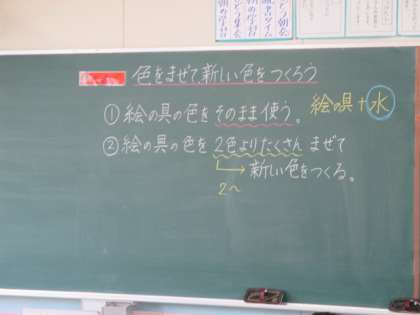 色をまぜて新しい色をつくろう
①絵の具の色をそのまま使う。
絵の具+水
②絵の具の色を2色よりたくさんまぜて
新しい色をつくる。
2〜